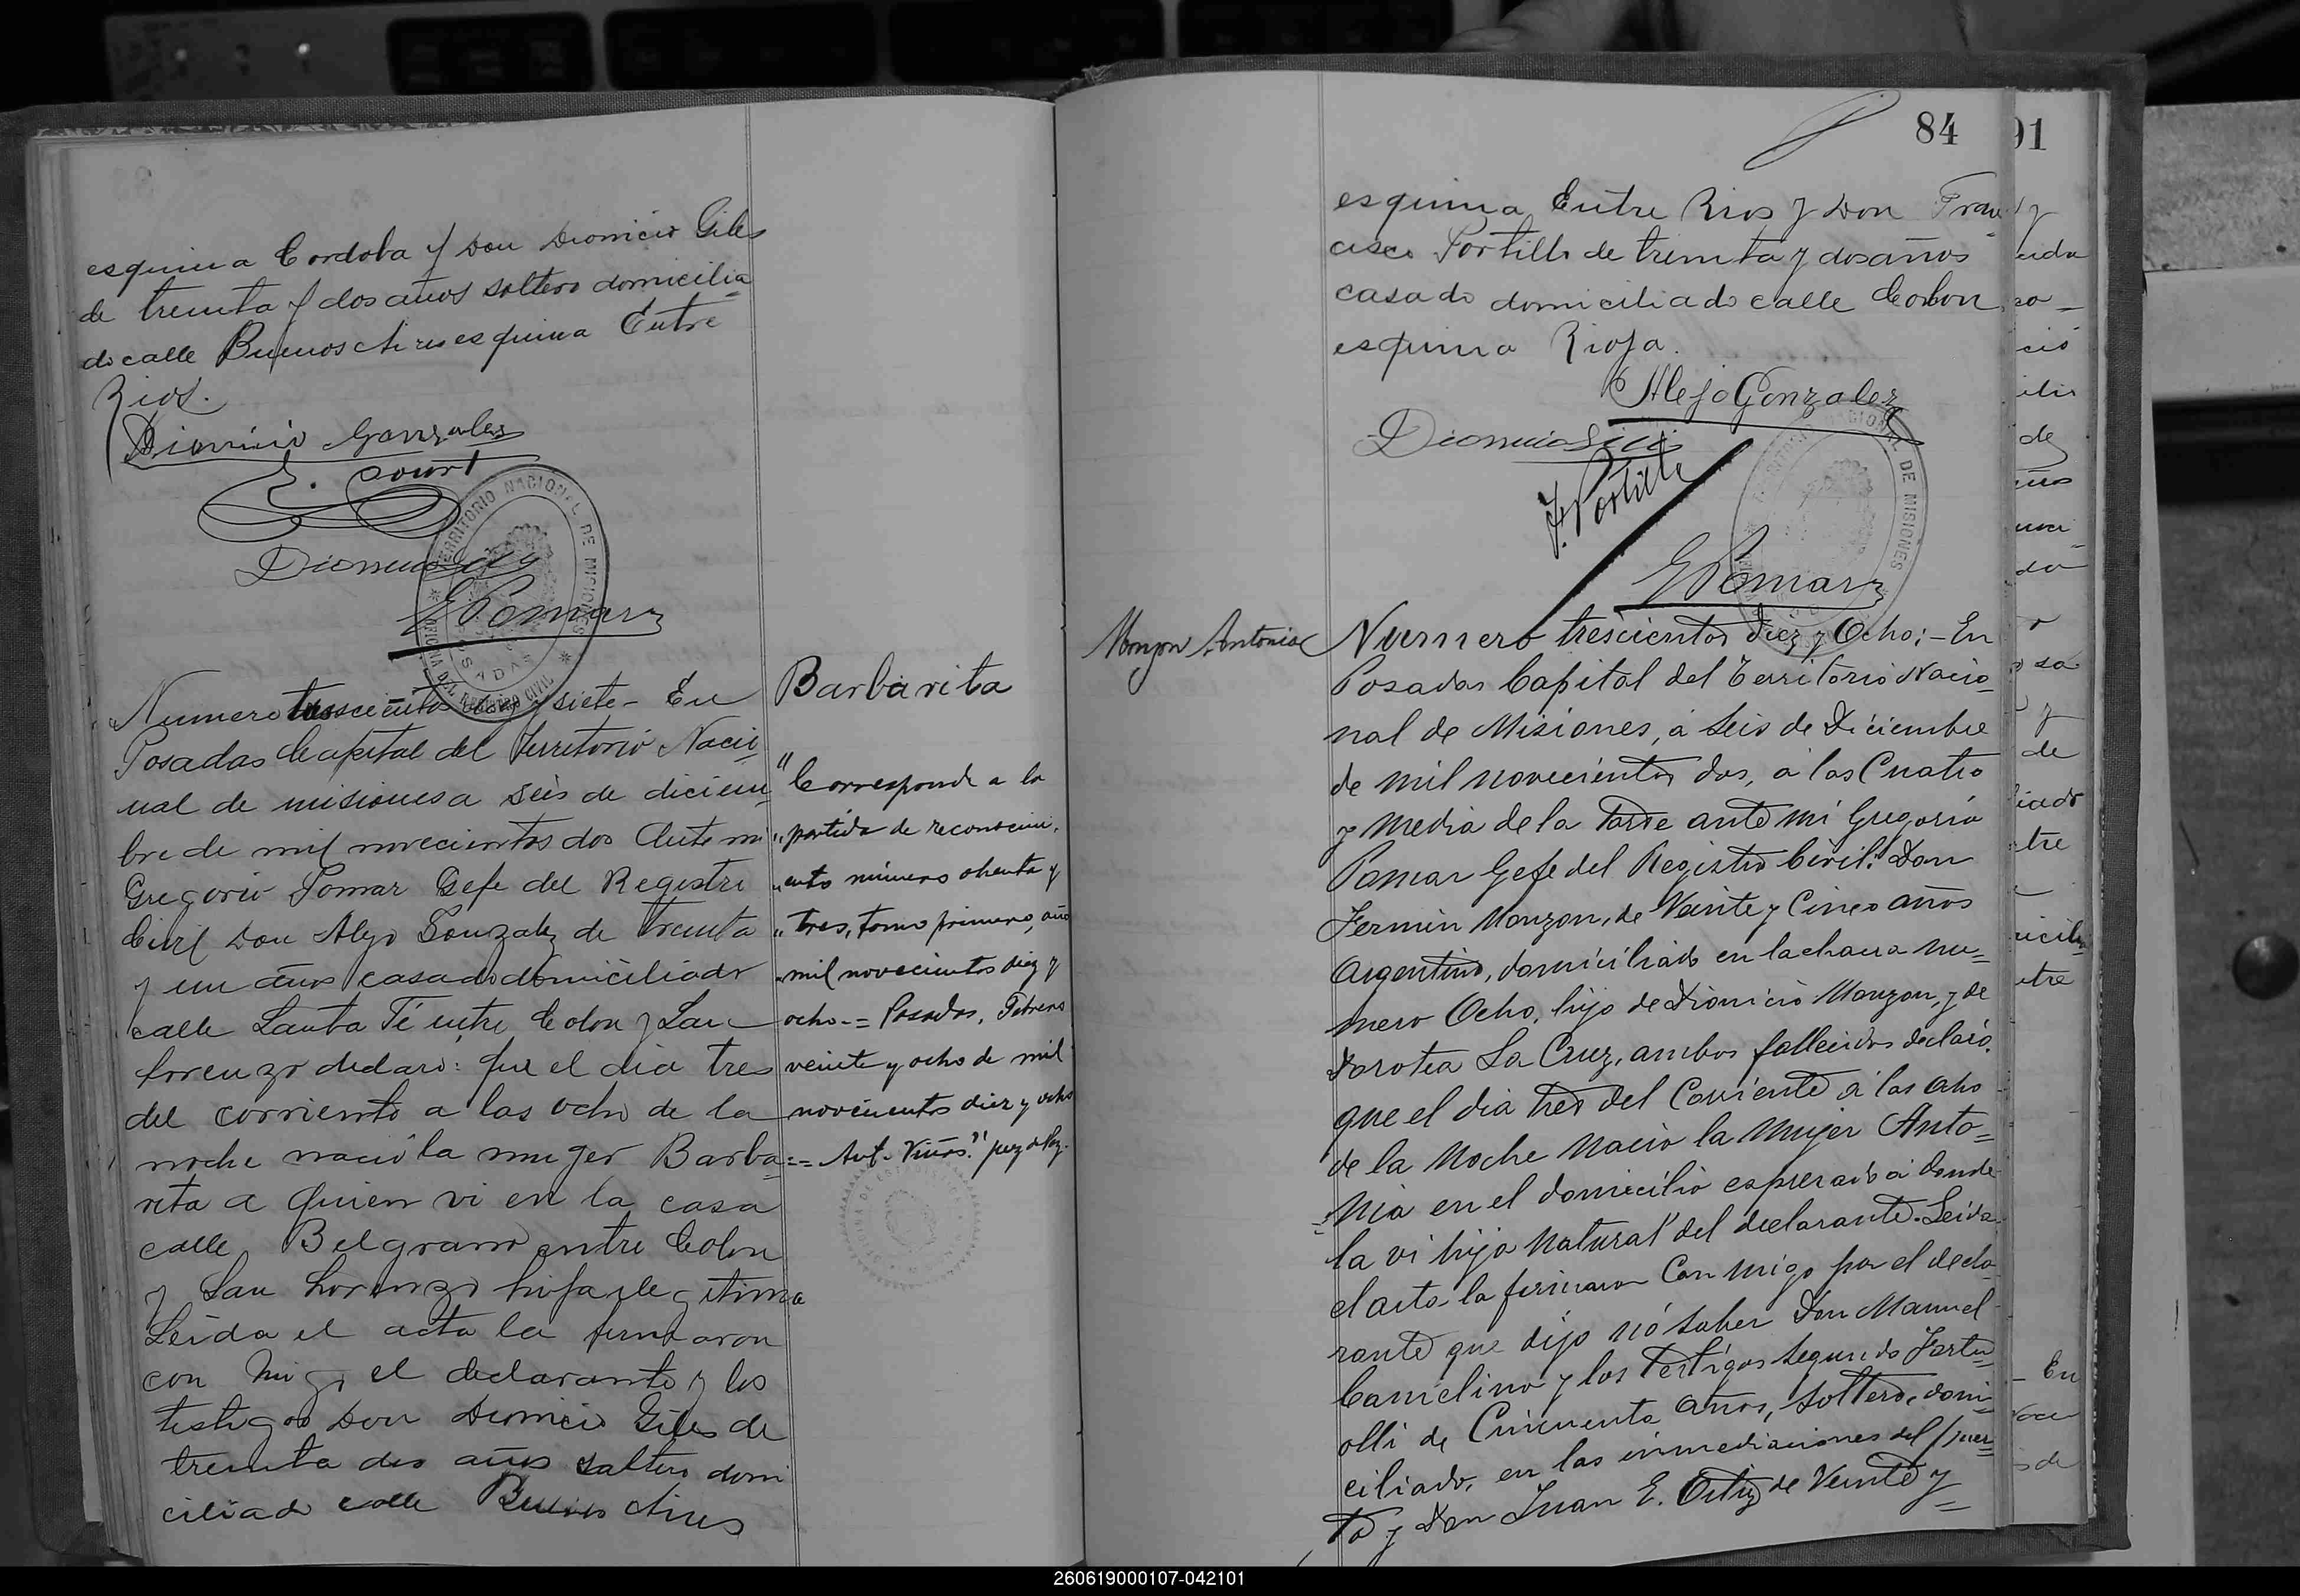 esquina Cordoba y Don Dionicio Giles
de treinta y dos años soltero domicilia
do calle Buenos Aires esquina Entre
Rios.
Dionicio Gonzales
E. Court
Dionicio Giles
GPomar
TERRITORIO NACIONAL DE MISIONES
OFICINA DEL REGISTRO CIVIL
POSADAS
Numero trescientos diez y siete - En
Posadas Capital del Territorio Nacio
nal de misiones a seis de diciem
bre de mil novecientos dos Ante mi
Gregorio Pomar Gefe del Registro
Civil Don Alejo Gonzalez de treinta
y un años casado domiciliado
calle Santa Fé entre Colon y San
Lorenzo declaro: que el dia tres
del corriente a las ocho de la
noche nacio la muger Barba=
rita a quien vi en la casa
calle Belgrano entre Colon
y San Lorenzo hija ilegitima
Leida el acta la firmaron
con migo el declarante y los
testigos Don Dionicio Giles de
treinta dos años soltero domi
ciliado calle Buenos Aires
Barbarita
"Corresponde a la
"partida de reconocimi-
"ento número ochenta y
"tres, tomo primero, año
"mil novecientos diez y
ocho.-= Posadas, Febrero
veinte y ocho de mil
novecientos diez y ocho
=- Ant. Viñas." juez de Paz.
84
esquina Entre Rios y Don Fran
cisco Portillo de treinta y dos años
casado domiciliado calle Colon
esquina Rioja.
Alejo Gonzalez
Dionicio Giles
F. Portillo
GPomar
NACIONAL DE MISIONES
Monzon Antonia
Numero trescientos diez y Ocho:- En
Posadas Capital del Territorio Nacio=
nal de Misiones, á Seis de Diciembre
de mil novecientos dos, á las Cuatro
y media de la tarde ante mi Gregorio
Pomar Gefe del Registro Civil: Don
Fermin Monzon, de Veinte y Cinco años
Argentino, domiciliado en la chacra nu=
mero Ocho, hijo de Dionicio Monzon, y de
Dorotea La Cruz, ambos fallecidos declaró.
que el dia tres del Corriente á las ocho
de la Noche Nacio la Mujer Anto=
nia en el domicilio espresado á donde
la vi hija Natural del declarante. Leida
el acta la firmaron Con migo por el decla
rante que dijo nó Saber Don Manuel
Camelino y los Testigos Segundo
olli de Cincuenta años, Soltero, domi=
ciliado, en las inmediaciones del Puer=
to y Don Juan E. Ortiz de Veinte y
=
91
de
En
de
260619000107-042101